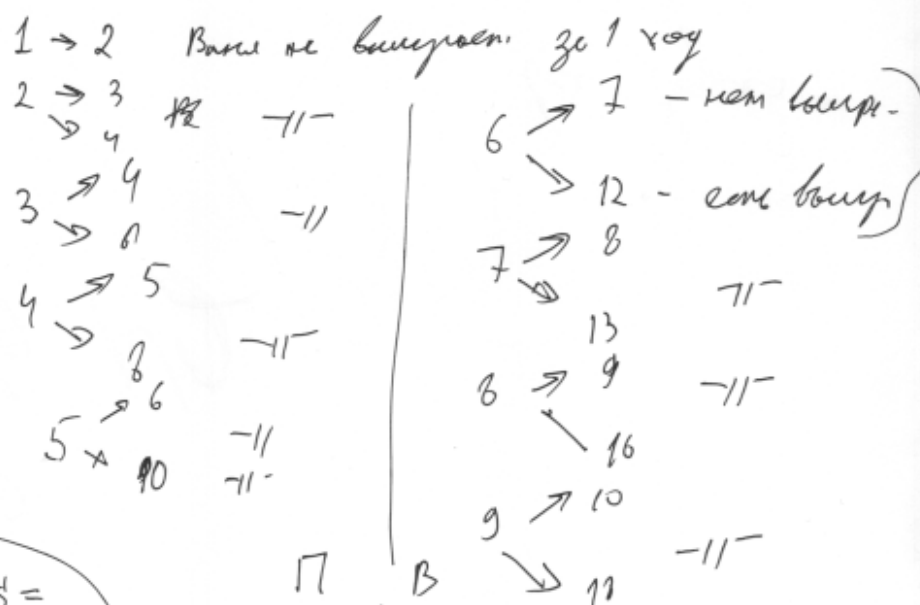 1 → 2 Ваня не выиграет. за 1 ход
2 → 3
↘ 4 -//-
3 ↗ 4
↘ 6 -//
4 ↗ 5
↘ 8 -//-
5 ↗ 6 -//
↘ 10 -//-
6 ↗ 7 - нет выигр.
↘ 12 - есть выигр
7 ↗ 8 -//-
↘ 13
8 ↗ 9 -//-
16
9 ↗ 10
↘ -//-
П В
S =